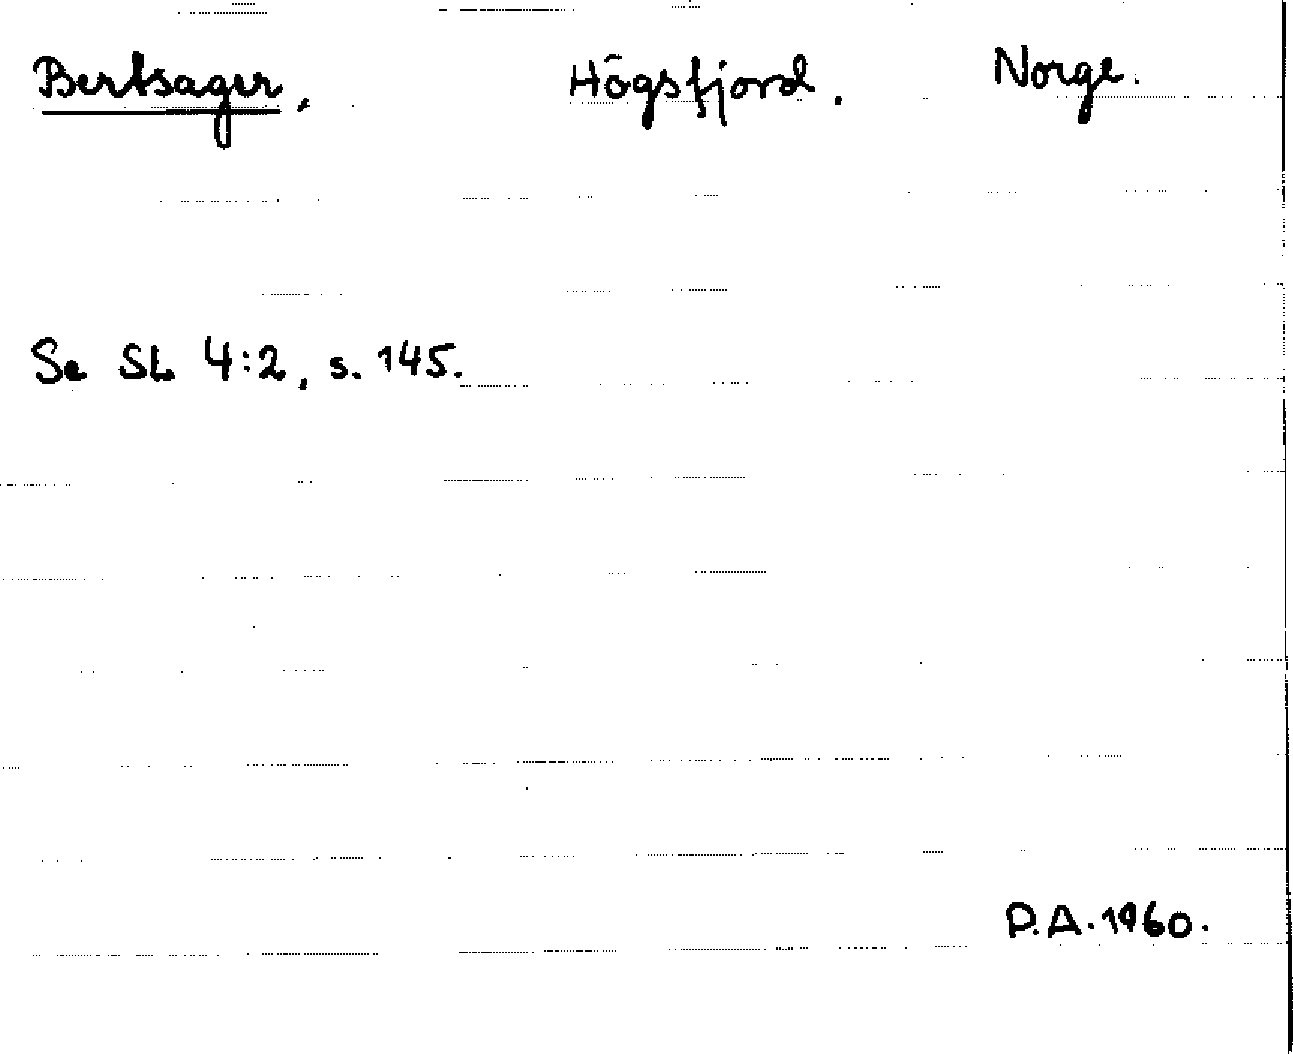 Bertsager, Högsfjord. Norge.
Se SL 4:2, s. 145.
P.A. 1960.